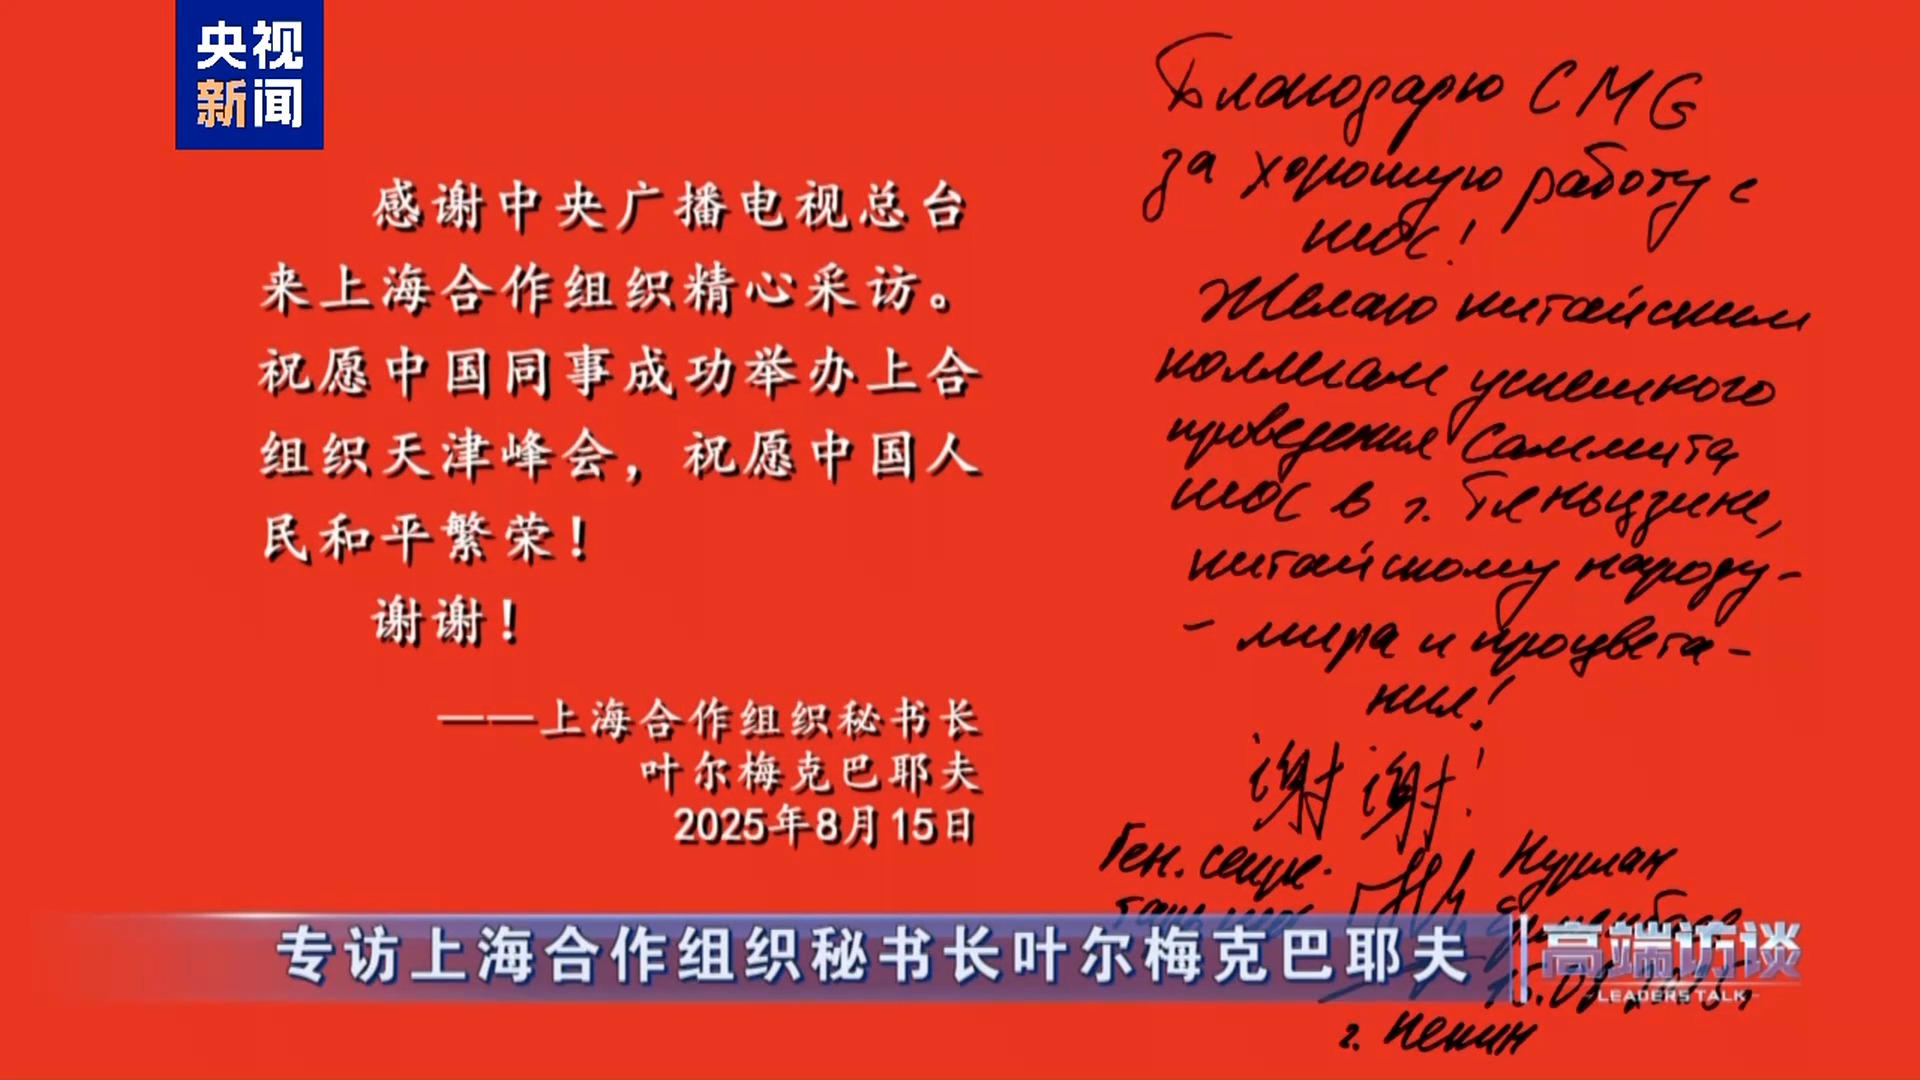 央视
新闻
感谢中央广播电视总台
来上海合作组织精心采访。
祝愿中国同事成功举办上合
组织天津峰会，祝愿中国人
民和平繁荣！
谢谢！
——上海合作组织秘书长
叶尔梅克巴耶夫
2025年8月15日
Благодарю CMG
за хорошую работу с
ШОС!
Желаю китайским
коллегам успешного
проведения Саммита
ШОС в г. Тяньцзине,
китайскому народу -
- мира и процвета-
ния!
谢谢!
Ген. секре-
тарь ШОС
Нурлан
г. Пекин
专访上海合作组织秘书长叶尔梅克巴耶夫
高端访谈
LEADERS TALK